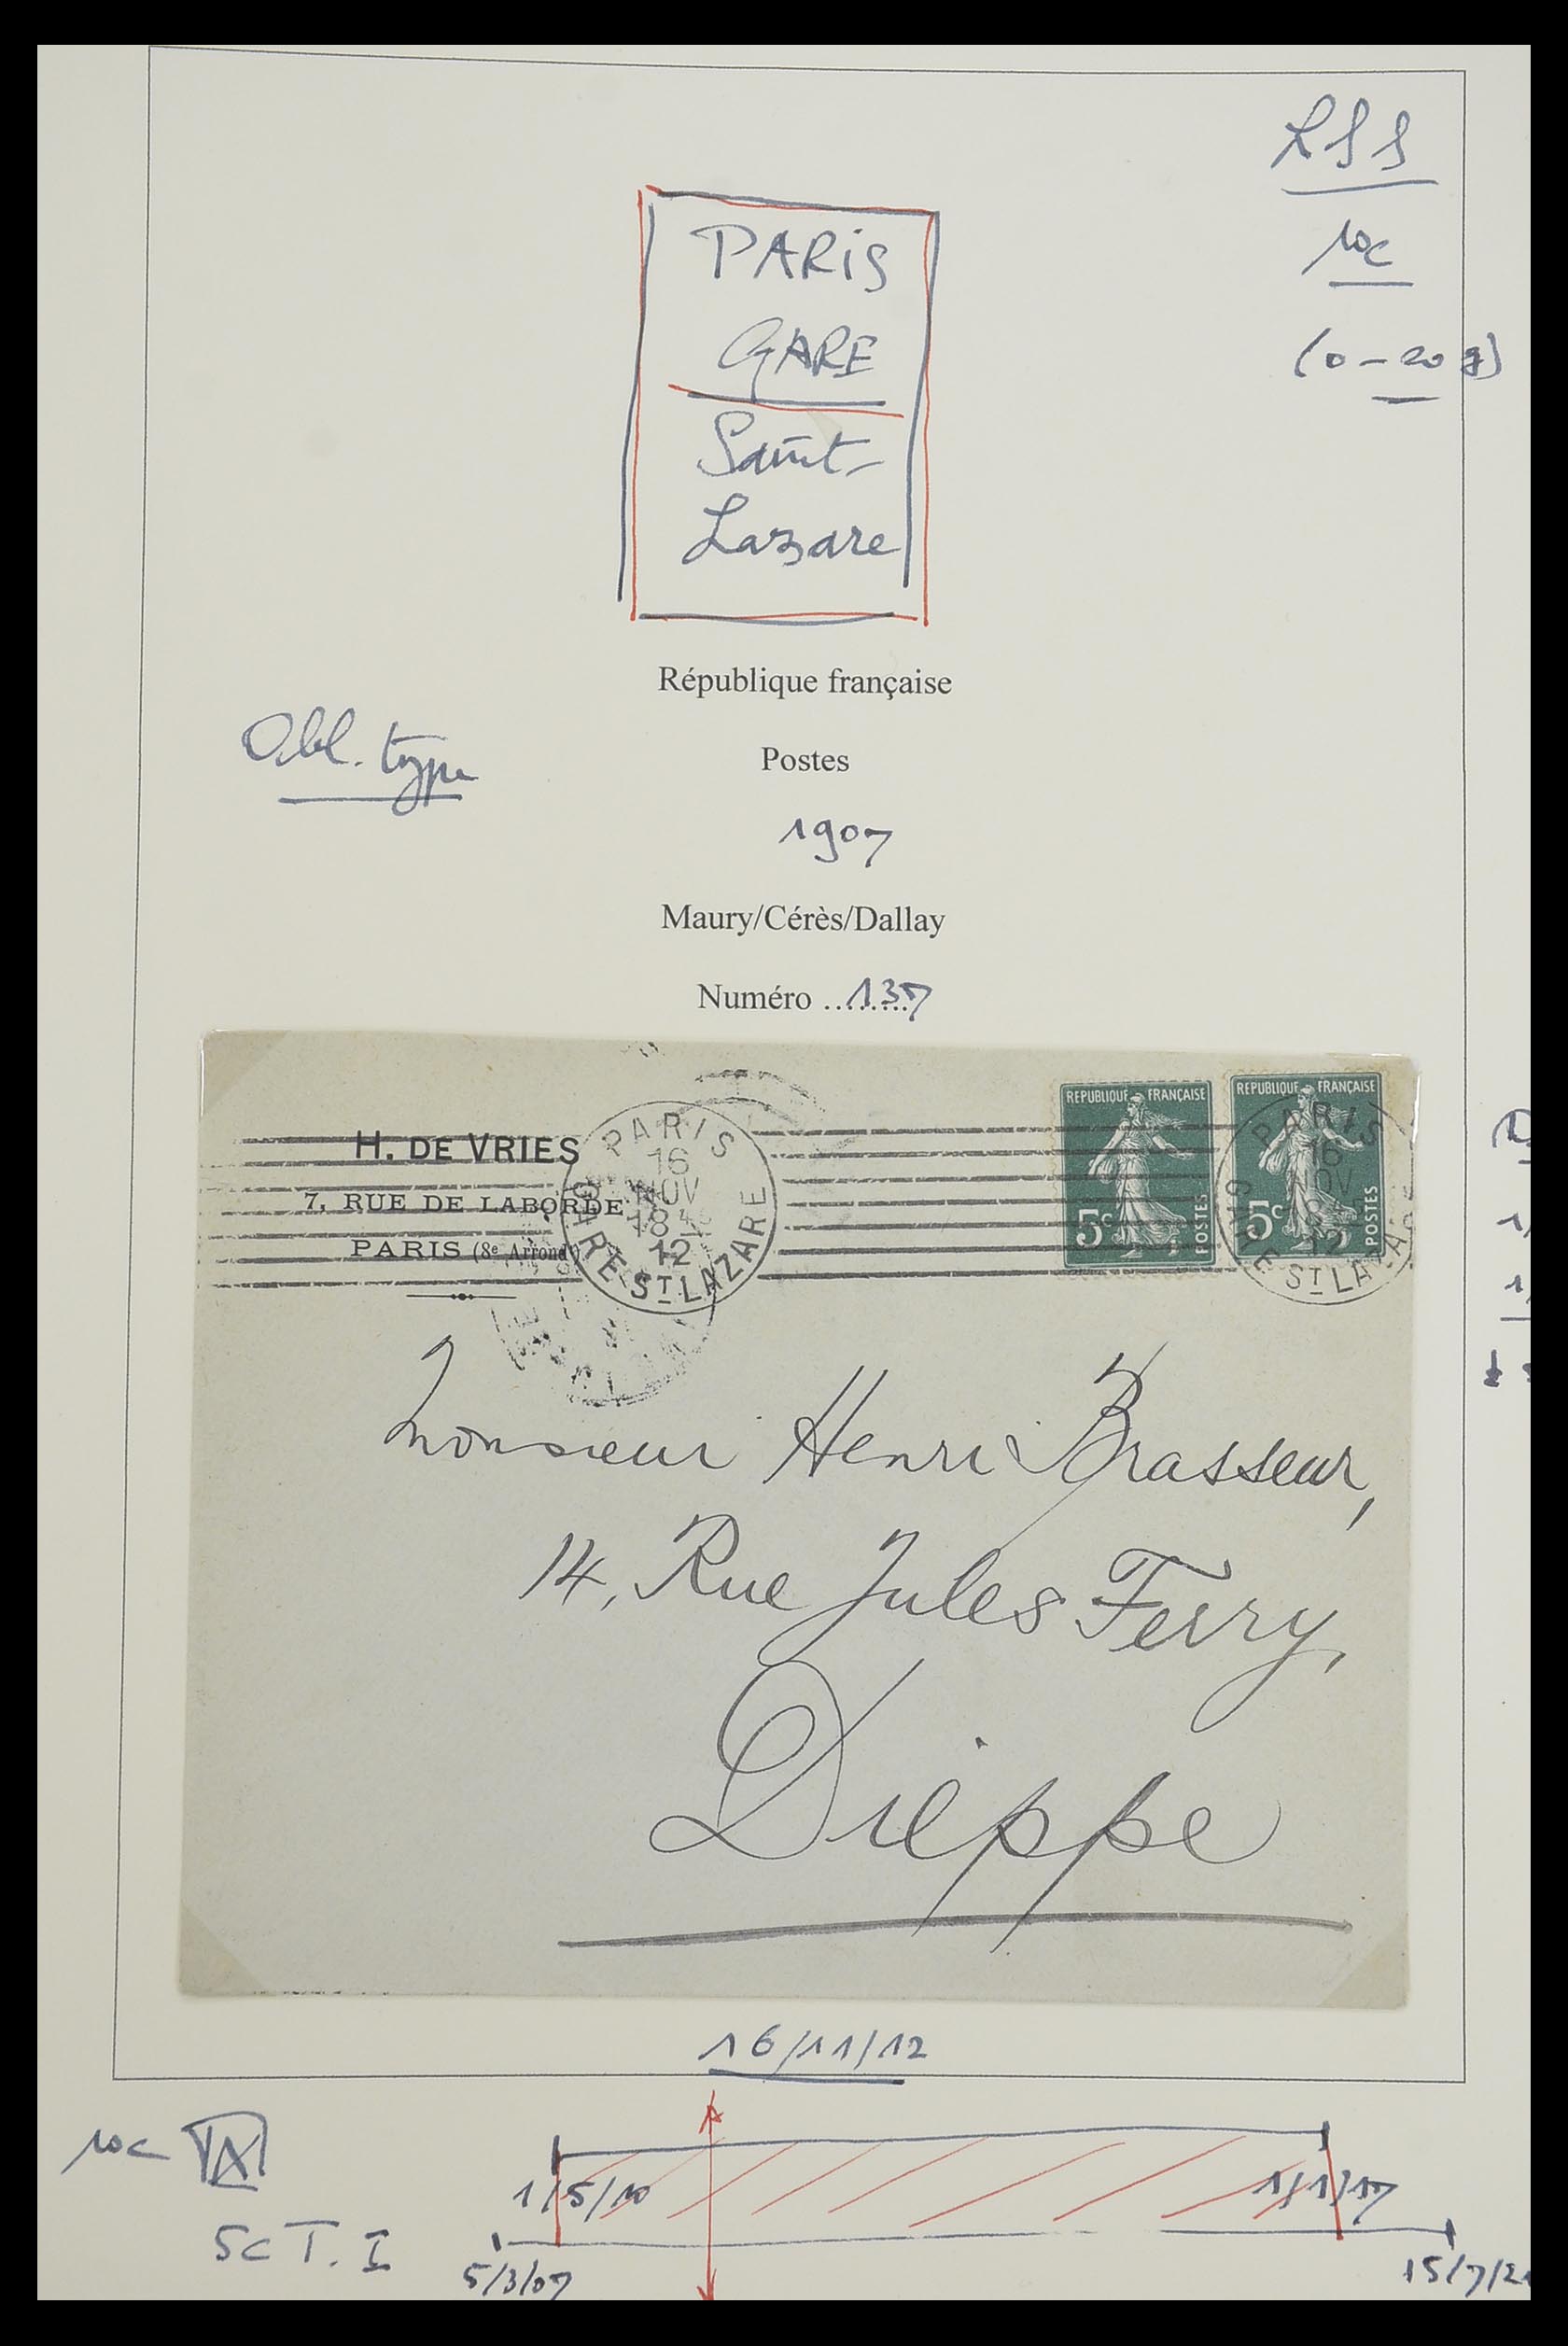 LSS
10c
(0 – 20 g)
PARiS
GARE
Saint-
Lazare
République française
Obl. type
Postes
1907
Maury/Cérès/Dallay
Numéro ........137
H. DE VRIES
7, RUE DE LABORDE
PARIS (8e Arrondt)
PARIS
16
NOV
18 4
12
GARE ST LAZARE
REPUBLIQUE FRANÇAISE
5c
POSTES
REPUBLIQUE FRANÇAISE
5c
POSTES
PARIS
16
NOV
12
GARE ST LAZARE
Monsieur Henri Brasseur,
14, Rue Jules Ferry,
Dieppe
16/11/12
10c
1/5/10
1/1/17
5c T. I
5/3/07
15/7/2